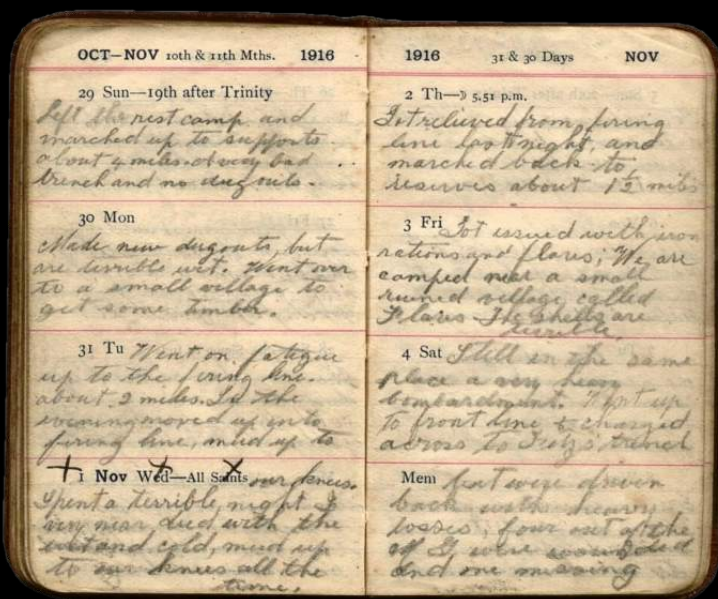 OCT—NOV 10th & 11th Mths. 1916
29 Sun—19th after Trinity
Left the rest camp and
marched up to supports
about 4 miles. A very bad
trench and no dug outs.
30 Mon
Made new dugouts, but
are terrible wet. Went over
to a small village to
get some timber.
31 Tu Went on fatigue
up to the firing line.
about 2 miles. In the
evening moved up into
firing line, mud up to
1 Nov Wed—All Saints our knees.
Spent a terrible, night I
very near died with the
wet and cold, mud up
to our knees all the
time.
1916 31 & 30 Days NOV
2 Th—☽ 5.51 p.m.
Got relieved from firing
line last night, and
marched back to
reserves about 1½ miles
3 Fri Got issued with iron
rations and flares; We are
camped near a small
ruined village called
Flares The shells are
terrible.
4 Sat Still in the same
place a very heavy
bombardment. Went up
to front line & charged
across to Fritz's trench
Mem but were driven
back with heavy
losses, four out of the
were wounded
and one missing